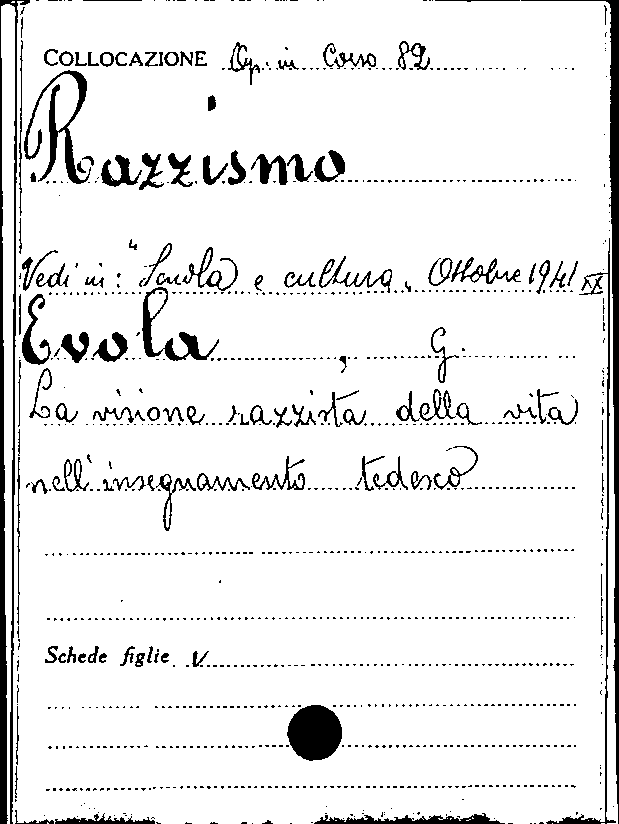 COLLOCAZIONE Op. in Corso 82
Razzismo
Vedi in: "Scuola e cultura„ Ottobre 1941 XX
Evola, G.
La visione razzista della vita
nell'insegnamento tedesco
Schede figlie V